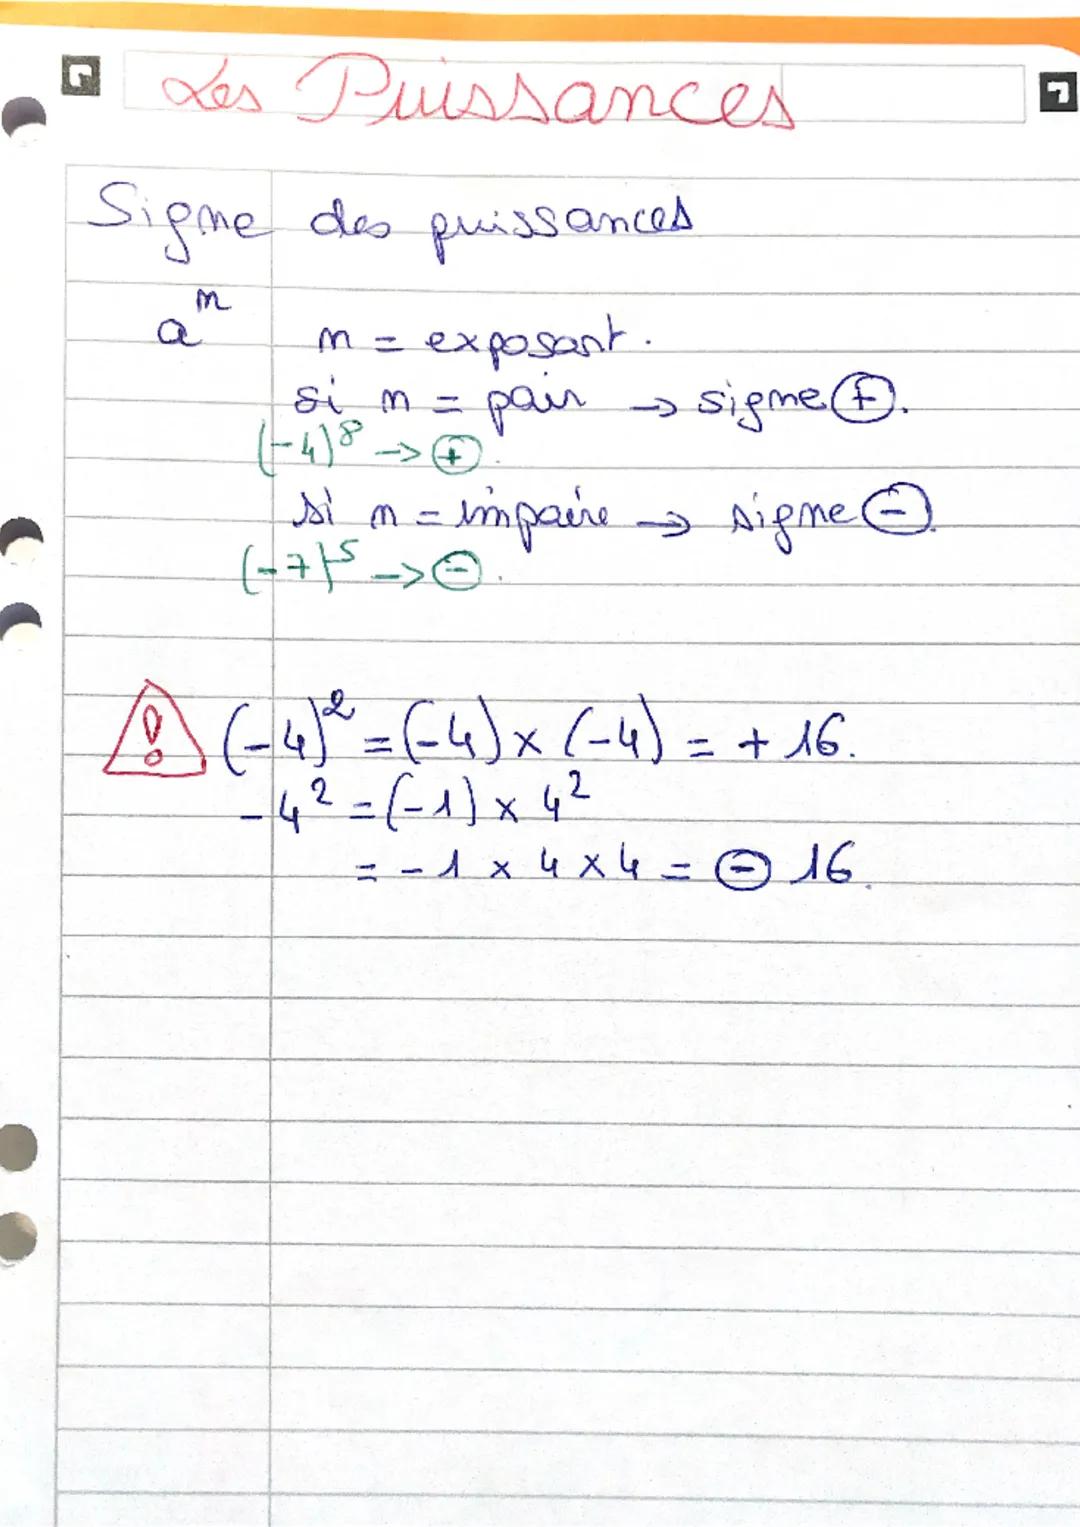 Les Puissances
Signe des puissances
aⁿ n = exposant.
si n = pair → signe ⊕.
(-4)⁸ → ⊕.
si n = impaire → signe ⊖.
(-7)⁵ → ⊖.
(-4)² = (-4) × (-4) = + 16.
-4² = (-1) × 4²
= - 1 × 4 × 4 = ⊖ 16.